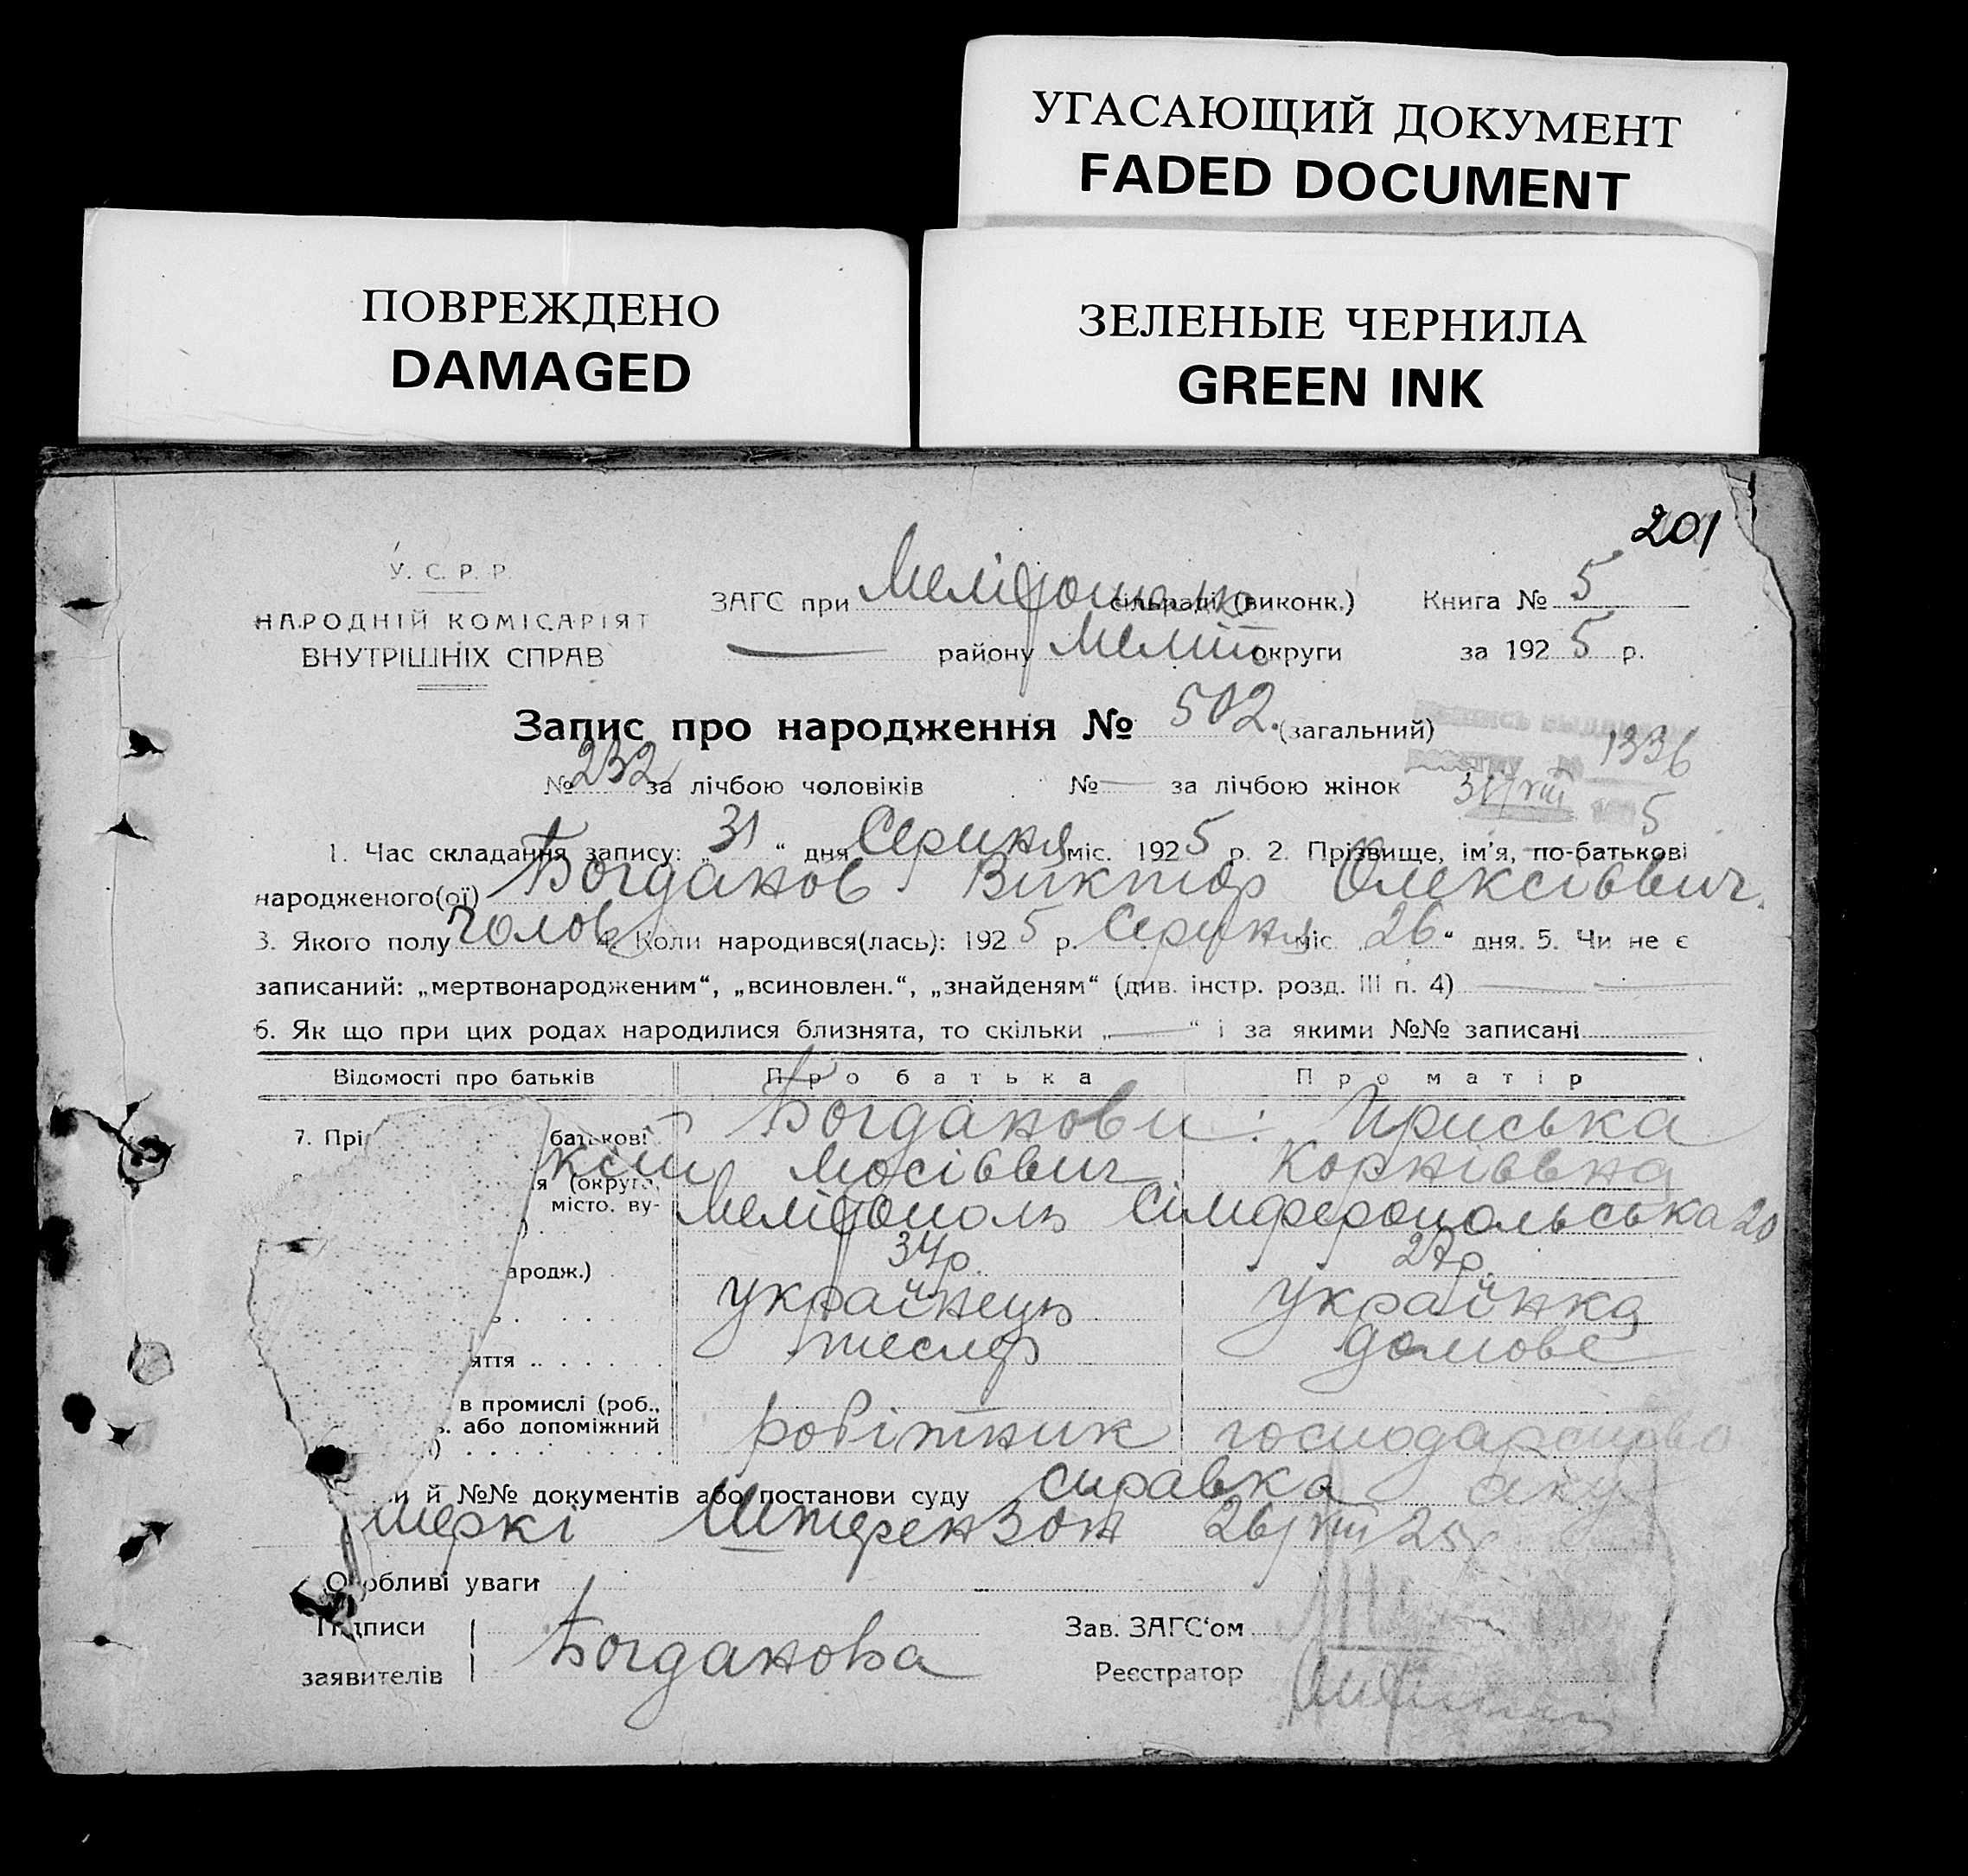 УГАСАЮЩИЙ ДОКУМЕНТ
FADED DOCUMENT
ПОВРЕЖДЕНО
DAMAGED
ЗЕЛЕНЫЕ ЧЕРНИЛА
GREEN INK
201
У. С. Р. Р.
НАРОДНІЙ КОМІСАРІЯТ
ВНУТРІШНІХ СПРАВ
ЗАГС при сільраді (виконк.) Книга № 5
району Меліт округи за 1925 р.
Запис про народження № 502. (загальний)
1336
№ 232 за лічбою чоловіків № — за лічбою жінок
31/VIII 5
1. Час складання запису: „31“ дня Серпня міс. 1925 р. 2. Прізвище, ім'я, по-батькові
народженого(ої) Богданов Виктор Олексієвич.
3. Якого полу Голов 4. Коли народився(лась): 1925 р. Серпня міс. 26“ дня. 5. Чи не є
записаний: „мертвонародженим“, „всиновлен.“, „знайденям“ (див. інстр. розд. III п. 4)
6. Як що при цих родах народилися близнята, то скільки „—“ і за якими №№ записані
Відомості про батьків Про батька Про матір
7. Прі батькові Богданови: Приська
ксій Мосієвич Корнієвна
я (округа,
місто, ву- Мелітополь Сімферопольська 20
ародж.) 34р. 27р.
українець українка
яття тесляр домове
в промислі (роб.,
або допоміжний робітник господарство
й №№ документів або постанови суду справка аку
шеркі Штерензон 26/VIII 25р
Особливі уваги
Підписи Зав. ЗАГС'ом
заявителів Богданова Реєстратор